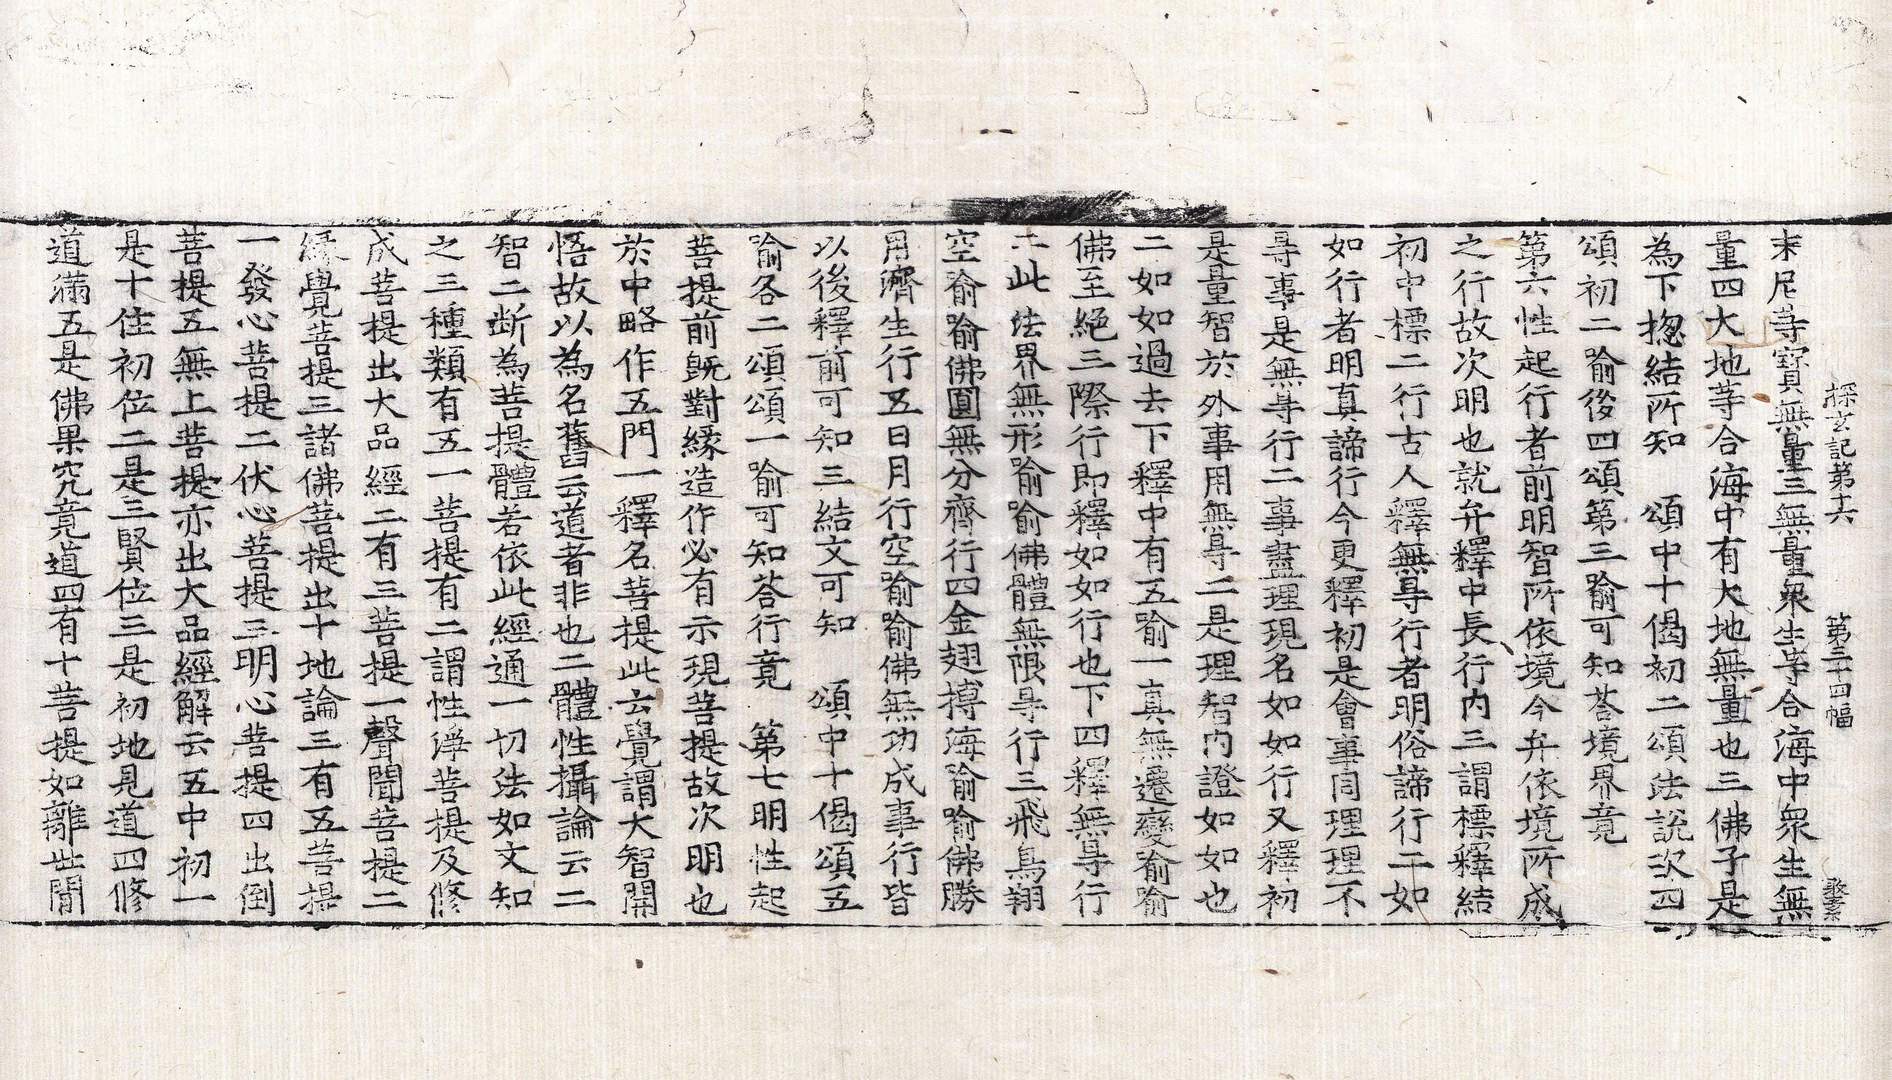 探玄記第十六　第三十四幅　憨素
末尼䓁寶無量三無量衆生等合海中衆生無
量四大地等合海中有大地無量也三佛子是
為下揔結所知　頌中十偈初二頌法說次四
頌初二喻後四頌第三喻可知荅境界竟
第六性起行者前明智所依境今弁依境所成
之行故次明也就弁釋中長行内三謂標釋結
初中標二行古人釋無㝵行者明俗諦行二如
如行者明真諦行今更釋初是會事同理理不
㝵事是無㝵行二事盡理現名如如行又釋初
是量智於外事用無㝵二是理智内證如如也
二如如過去下釋中有五喻一真無遷變喻喻
佛至絕三際行即釋如如行也下四釋無㝵行
二此法界無形喻喻佛體無限㝵行三飛鳥翔
空喻喻佛圓無分齊行四金翅搏海喻喻佛勝
用濟生行五日月行空喻喻佛無功成事行皆
以後釋前可知三結文可知　頌中十偈頌五
喻各二頌頌一喻可知荅行竟　第七明性起
菩提前旣對緣造作必有示現菩提故次明也
於中略作五門一釋名菩提此云覺謂大智開
悟故以為名舊云道者非也二體性攝論云二
智二断為菩提體若依此經通一切法如文知
之三種類有五一菩提有二謂性淨菩提及修
成菩提出大品經二有三菩提一聲聞菩提二
緣覺菩提三諸佛菩提出十地論三有五菩提
一發心菩提二伏心菩提三明心菩提四出倒
菩提五無上菩提亦出大品經解云五中初一
是十住初位二是三賢位三是初地見道四修
道滿五是佛果究竟道四有十菩提如離世間